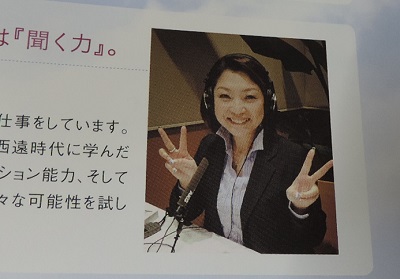 は『聞く力』。
仕事をしています。
西遠時代に学んだ
ション能力、そして
々な可能性を試し